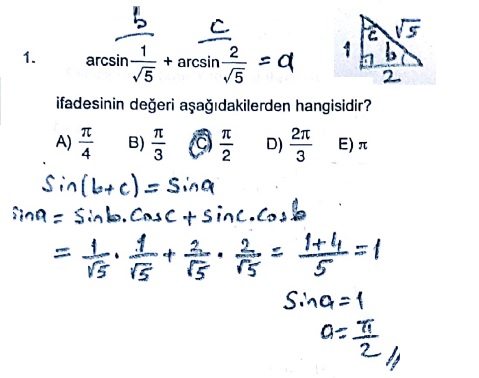 b c
1. arcsin 1/√5 + arcsin 2/√5 = a
c √5
1 b
2
ifadesinin değeri aşağıdakilerden hangisidir?
A) π/4 B) π/3 C) π/2 D) 2π/3 E) π
Sin(b+c) = Sina
Sina = Sinb.Cosc + Sinc.Cosb
= 1/√5 . 1/√5 + 2/√5 . 2/√5 = 1+4/5 = 1
Sina = 1
a = π/2 //